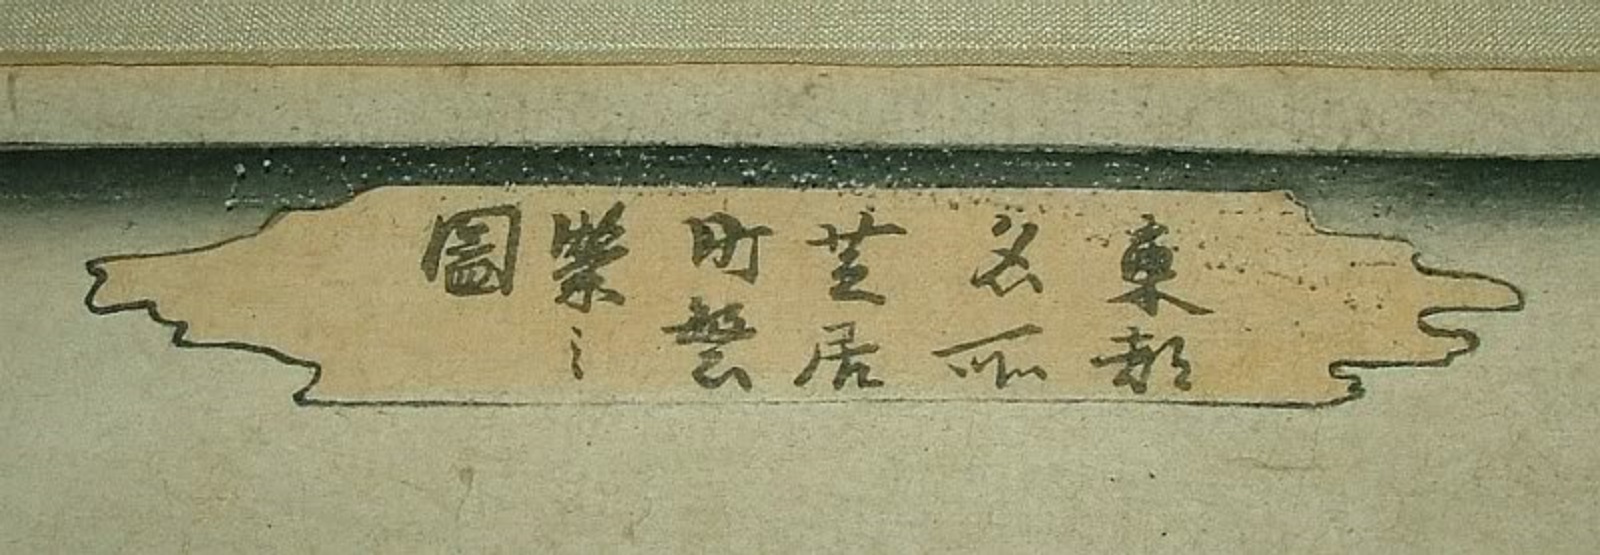 東都
名所
芝居
町繁
榮之
圖